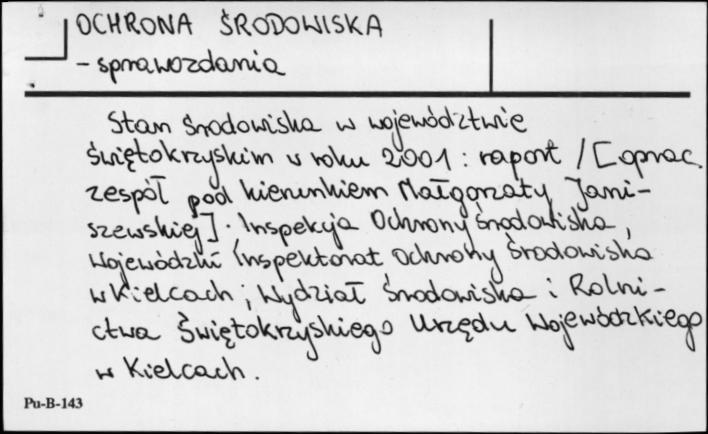 OCHRONA ŚRODOWISKA
- sprawozdania
Stan środowiska w województwie
świętokrzyskim w roku 2001 : raport / [oprac.
zespół pod kierunkiem Małgorzaty Jani-
szewskiej]. Inspekcja Ochrony Środowiska,
Wojewódzki Inspektorat Ochrony Środowiska
w Kielcach ; Wydział Środowiska i Rolni-
ctwa Świętokrzyskiego Urzędu Wojewódzkiego
w Kielcach.
Pu-B-143